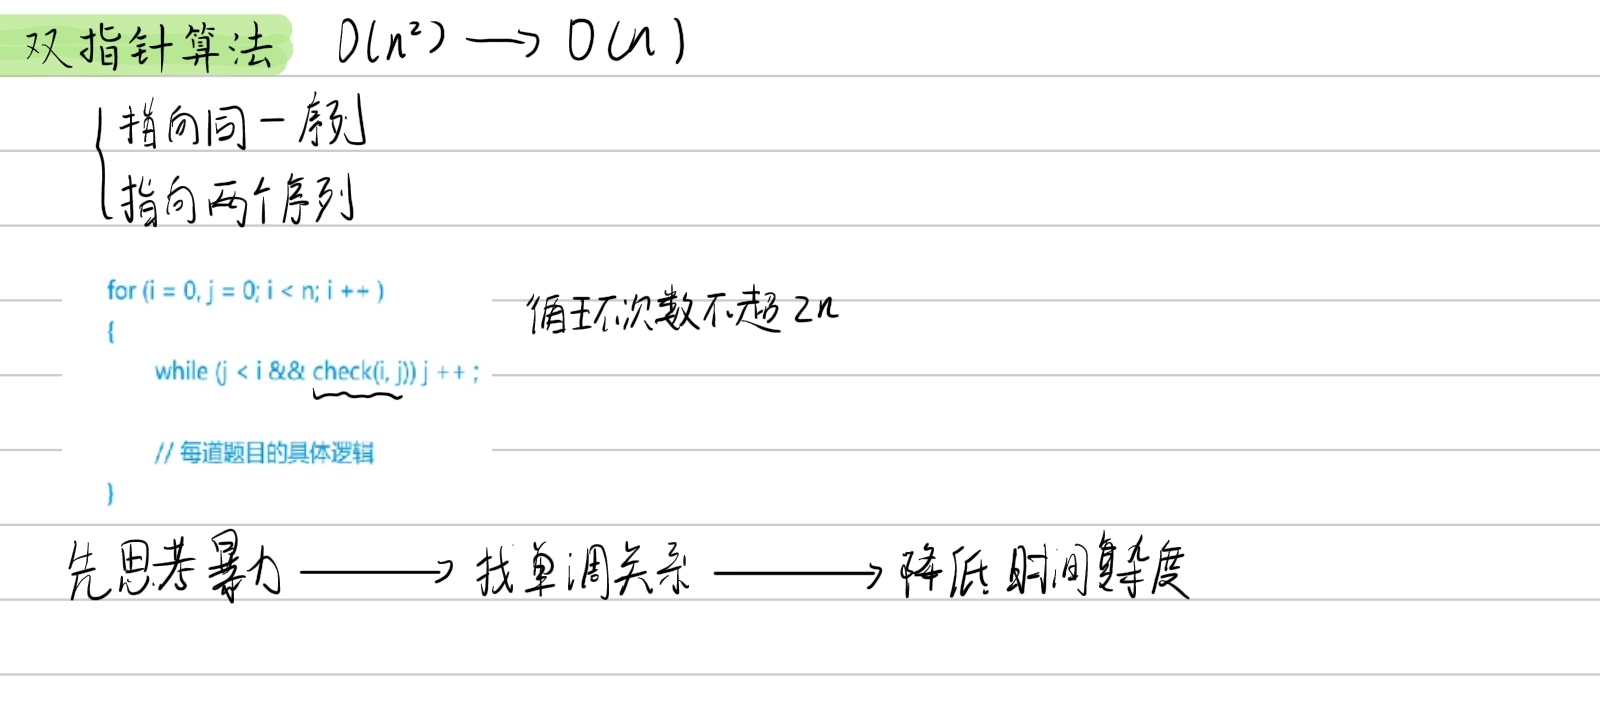 双指针算法 O(n²) → O(n)
指向同一序列
指向两个序列
for (i = 0, j = 0; i < n; i ++ )
{
循环次数不超2n
while (j < i && check(i, j)) j ++ ;
// 每道题目的具体逻辑
}
先思考暴力 → 找单调关系 → 降低时间复杂度